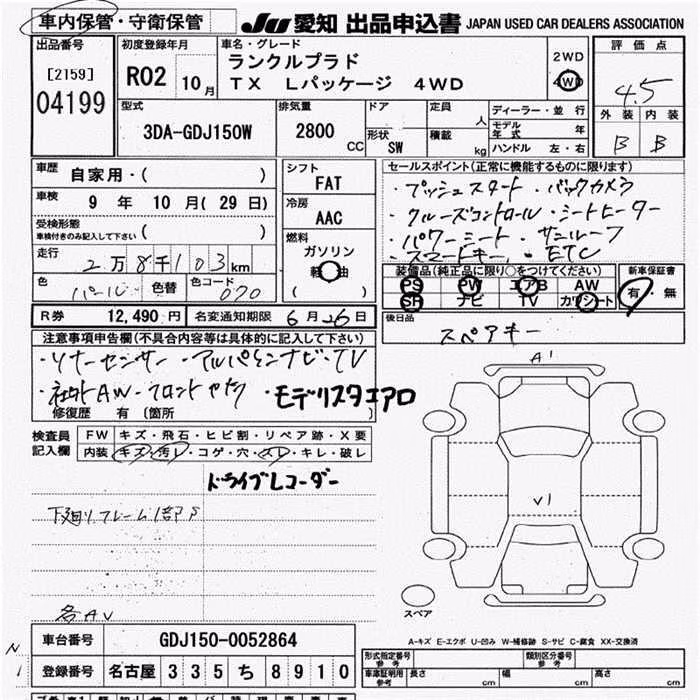 車内保管・守衛保管 JU 愛知 出品申込書 JAPAN USED CAR DEALERS ASSOCIATION
出品番号 [2159] 04199
初度登録年月 R02 10月
車名・グレード ランクルプラド
TX Lパッケージ 4WD
2WD
4WD
評価点 4.5
外装 内装
B B
型式 3DA-GDJ150W
排気量 2800 CC
ドア 形状 SW
定員 人 積載 kg
ディーラー・並行
モデル年式 年
ハンドル 左・右
車歴 自家用・( )
車検 9年 10月(29日)
受検形態 車検付きのみ記入して下さい ( )
走行 2万8千103km
色 パール 色替 色コード 070
シフト FAT
冷房 AAC
燃料 ガソリン
軽油
( )
セールスポイント(正常に機能するものに限ります)
・プッシュスタート ・バックカメラ
・クルーズコントロール ・シートヒーター
・パワーシート ・サンルーフ
・スマートキー ・ETC
装備品(純正品に限り○をつけてください)
PS PW エアB AW
SR ナビ TV カワシート
新車保証書
有・無
R券 12,490円 名変通知期限 6月26日
後日品 スペアキー
注意事項申告欄(不具合内容等は具体的に記入して下さい)
・ソナーセンサー ・アルパインナビ・TV
・社外AW ・フロント ・モデリスタエアロ
修復歴 有 〔箇所 〕
検査員記入欄
FW キズ・飛石・ヒビ割・リペア跡・X要
内装 キズ・汚レ・コゲ・穴・スレ・キレ・破レ
ドライブレコーダー
下廻り、フレーム1部S
各AV
N1
A1
V1
スペア
A-キズ E-エクボ U-凹み W-補修跡 S-サビ C-腐食 XX-交換済
車台番号 GDJ150-0052864
登録番号 名古屋 335 ち 8910
形式指定番号 参考
類別区分番号 参考
車庫証明用 参考 長さ 幅 高さ